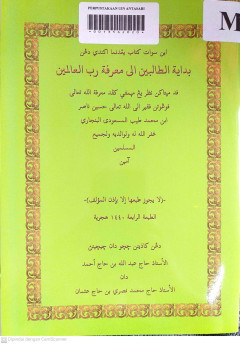 PERPUSTAKAAN UIN ANTASARI
M
اين سوات كتاب يڠدنما اكندي دڠن
بداية الطالبين الى معرفة رب العالمين
فد مپتاكن نظر يڠ
كفد معرفة الله تعالى
فقير الى الله تعالى حسين ناصر
ابن محمد طيب المسعودي البنجاري
غفر الله له ولوالديه ولجميع
المسلمين
آمين
﴿لا يجوز طبعها إلا بإذن المؤلف﴾
الطبعة الرابعة ١٤٤٠ هجرية
دڠن
الأستاذ حاج عبد الله بن حاج أحمد
دان
الأستاذ حاج محمد نصري بن حاج عثمان